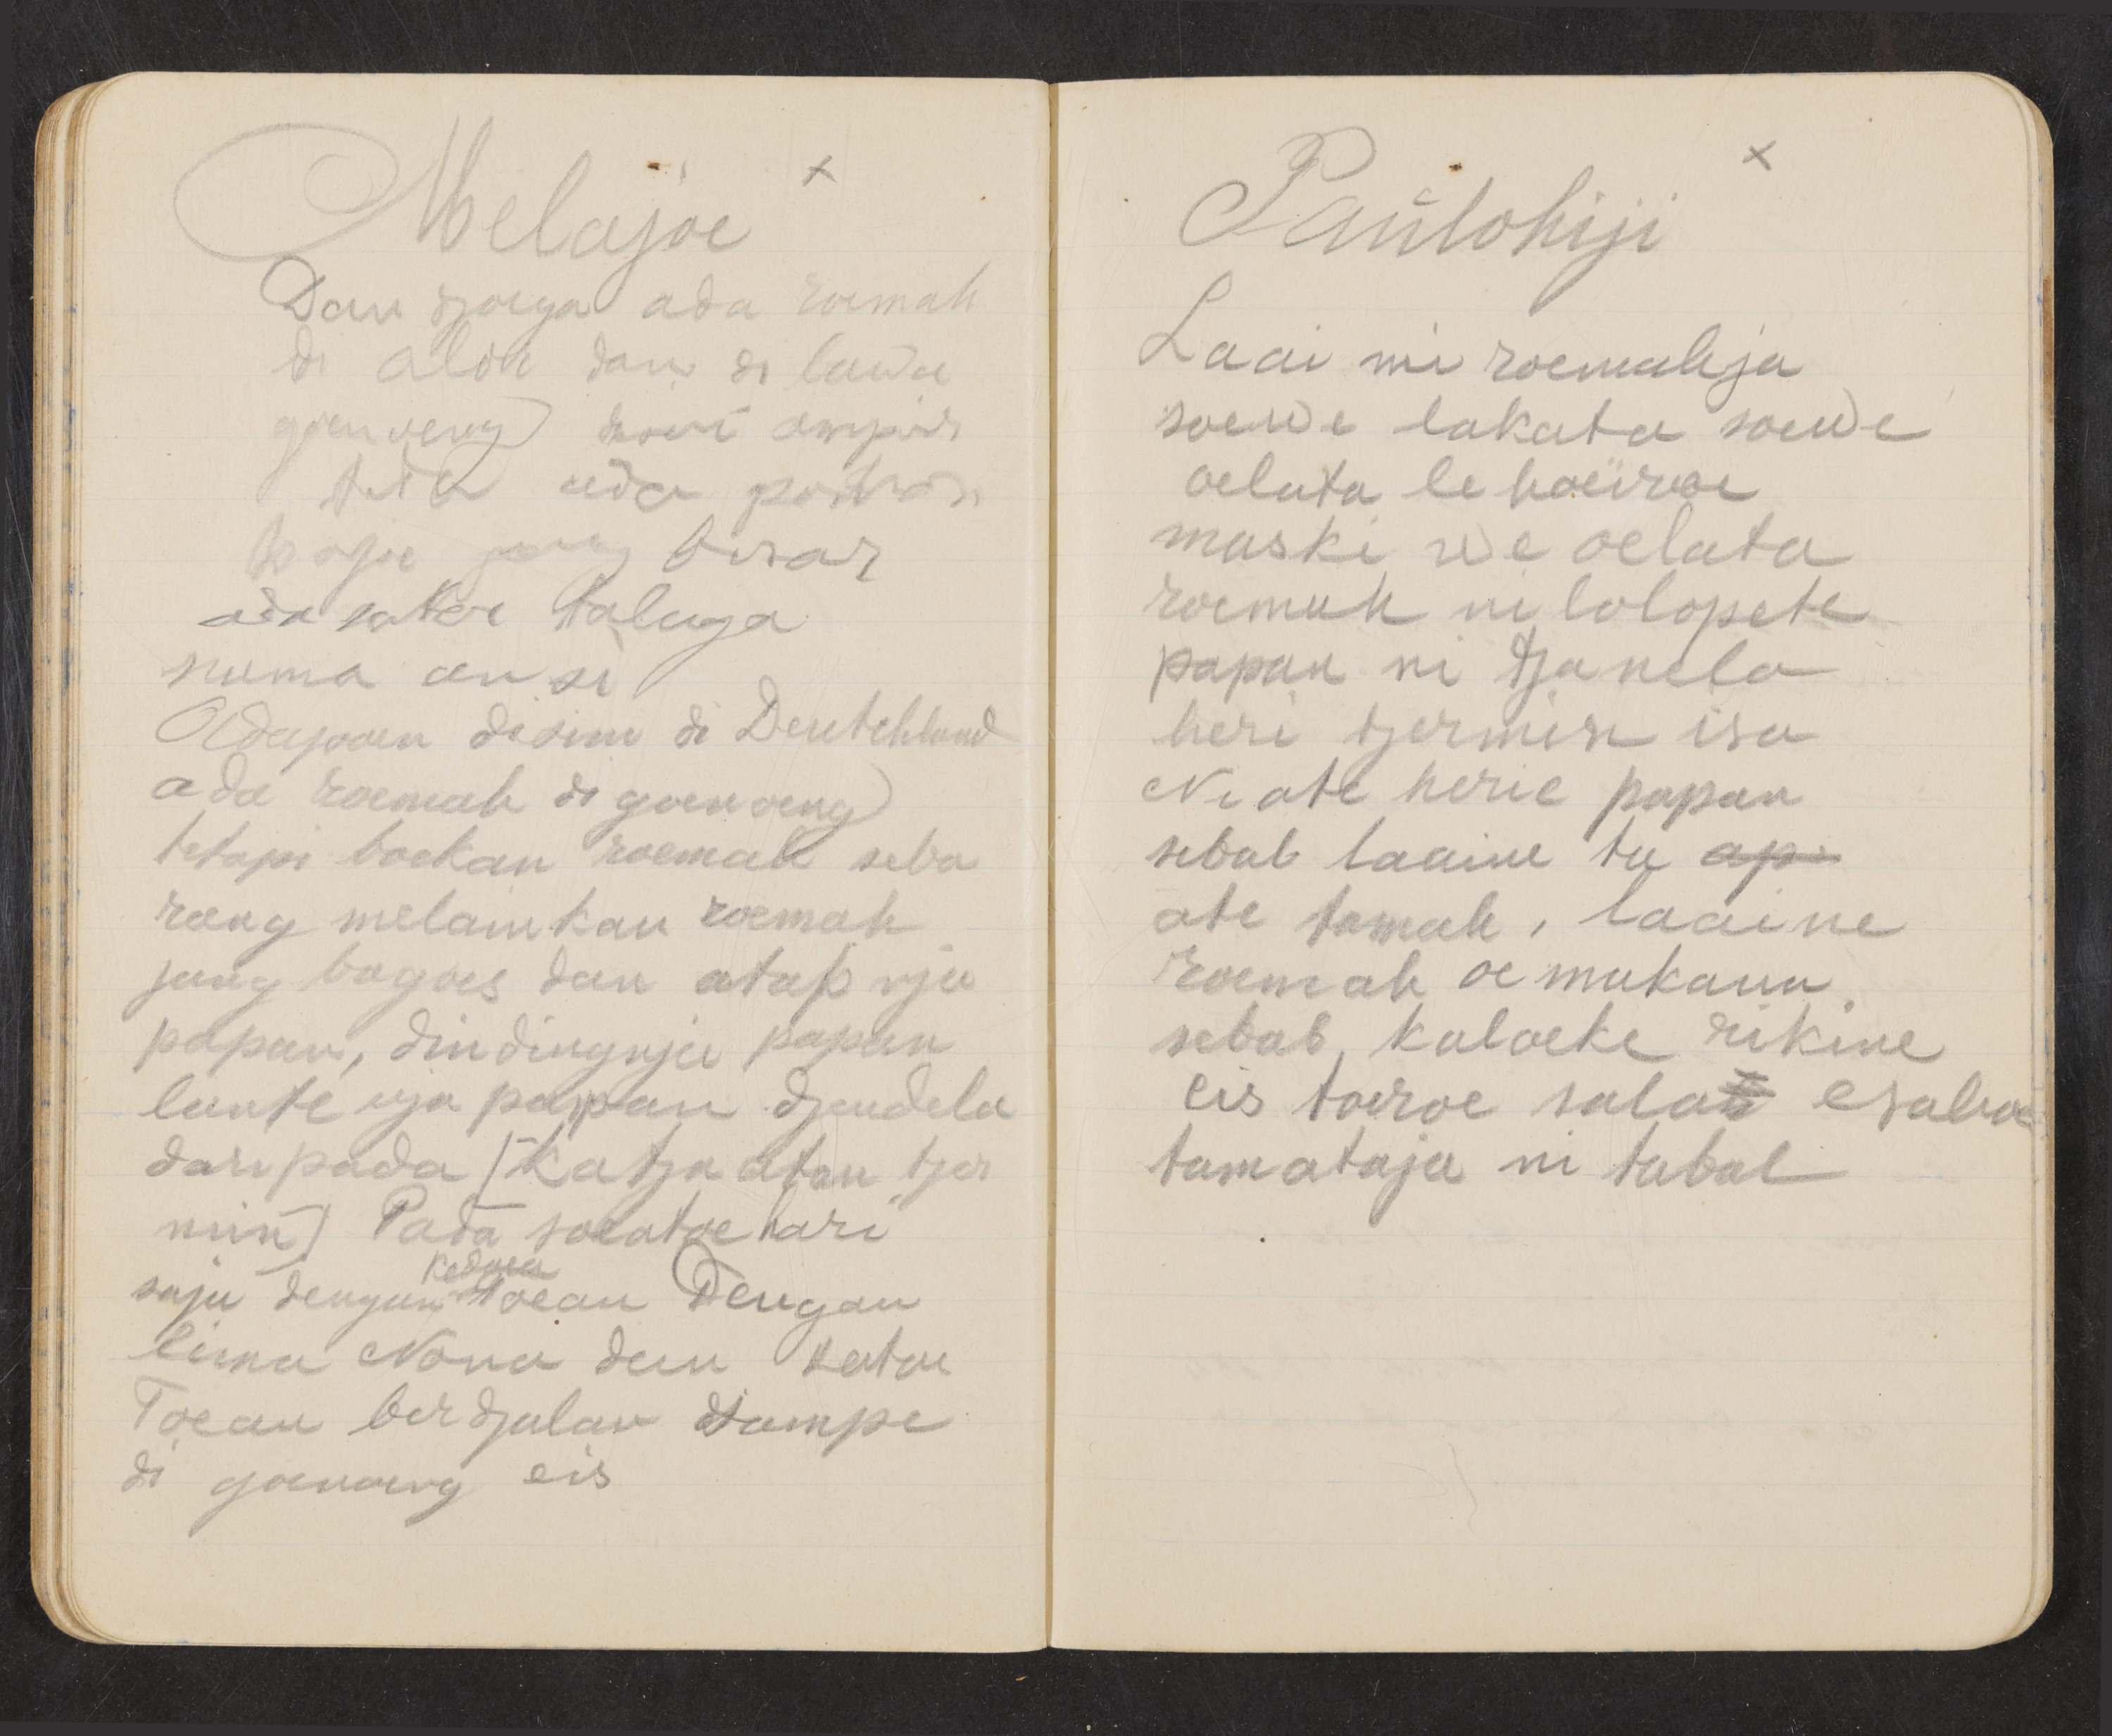 Melajoe x
Dan djoega ada roemah
di alon dan di bawa
goenoeng ampir
tida ada pohon
kajoe jang besar
ada satoe talaga
nama ansi
Adapoen disini di Deutchland
ada roemah di goenoeng
tetapi boekan roemah seba
rang melainkan roemah
jang bagoes dan atap nja
papan, dindingnja papan
lante nja papan djendela
daripada [katja atau tjer
min] Pada soeatoe hari
saja dengan kedoea toean Dengan
lima Nona dan satoe
Toean berdjalan sampe
di goenoeng eis
Paúlohiji x
Laai mi roemahja
soewe lakata soewe
oelata le hoeiroe
maski we oelata
roemah ni lolopete
papan ni tjanela
heri tjermin isa
Ni ate herie papan
sebab laaine ta ap
ate tamah, laaine
roemah oe makana
sebab kaloeke rikine
eis toeroe sala esahoe
tamataja ni tabal